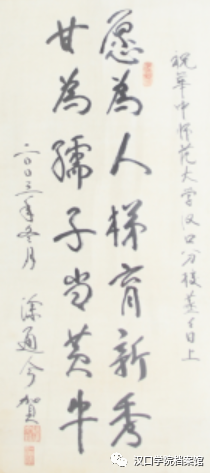 祝華中師范大学汉口分校蒸蒸日上
愿為人梯育新秀
甘為孺子当黄牛
二〇〇三年冬月
涂通今贺
汉口学院档案馆